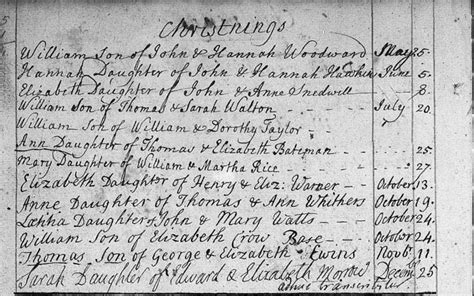 Christnings
William Son of John & Hannah Woodward May 25.
Hannah Daughter of John & Hannah June 5.
Elizabeth Daughter of John & Anne Snedwill 8.
William Son of Thomas & Sarah Walton July 20.
William Son of William & Dorothy Taylor
Ann Daughter of Thomas & Elizabeth Bateman 25.
Mary Daughter of William & Martha Rice 27.
Elizabeth Daughter of Henry & Eliz: Warner October 13.
Anne Daughter of Thomas & Ann Whithers October 19.
Lætitia Daughter of John & Mary Watts October 24.
William Son of Elizabeth Crow Base October 24.
Thomas Son of George & Elizabeth Ewins Novb. 11.
Sarah Daughter of Edward & Elizabeth 25